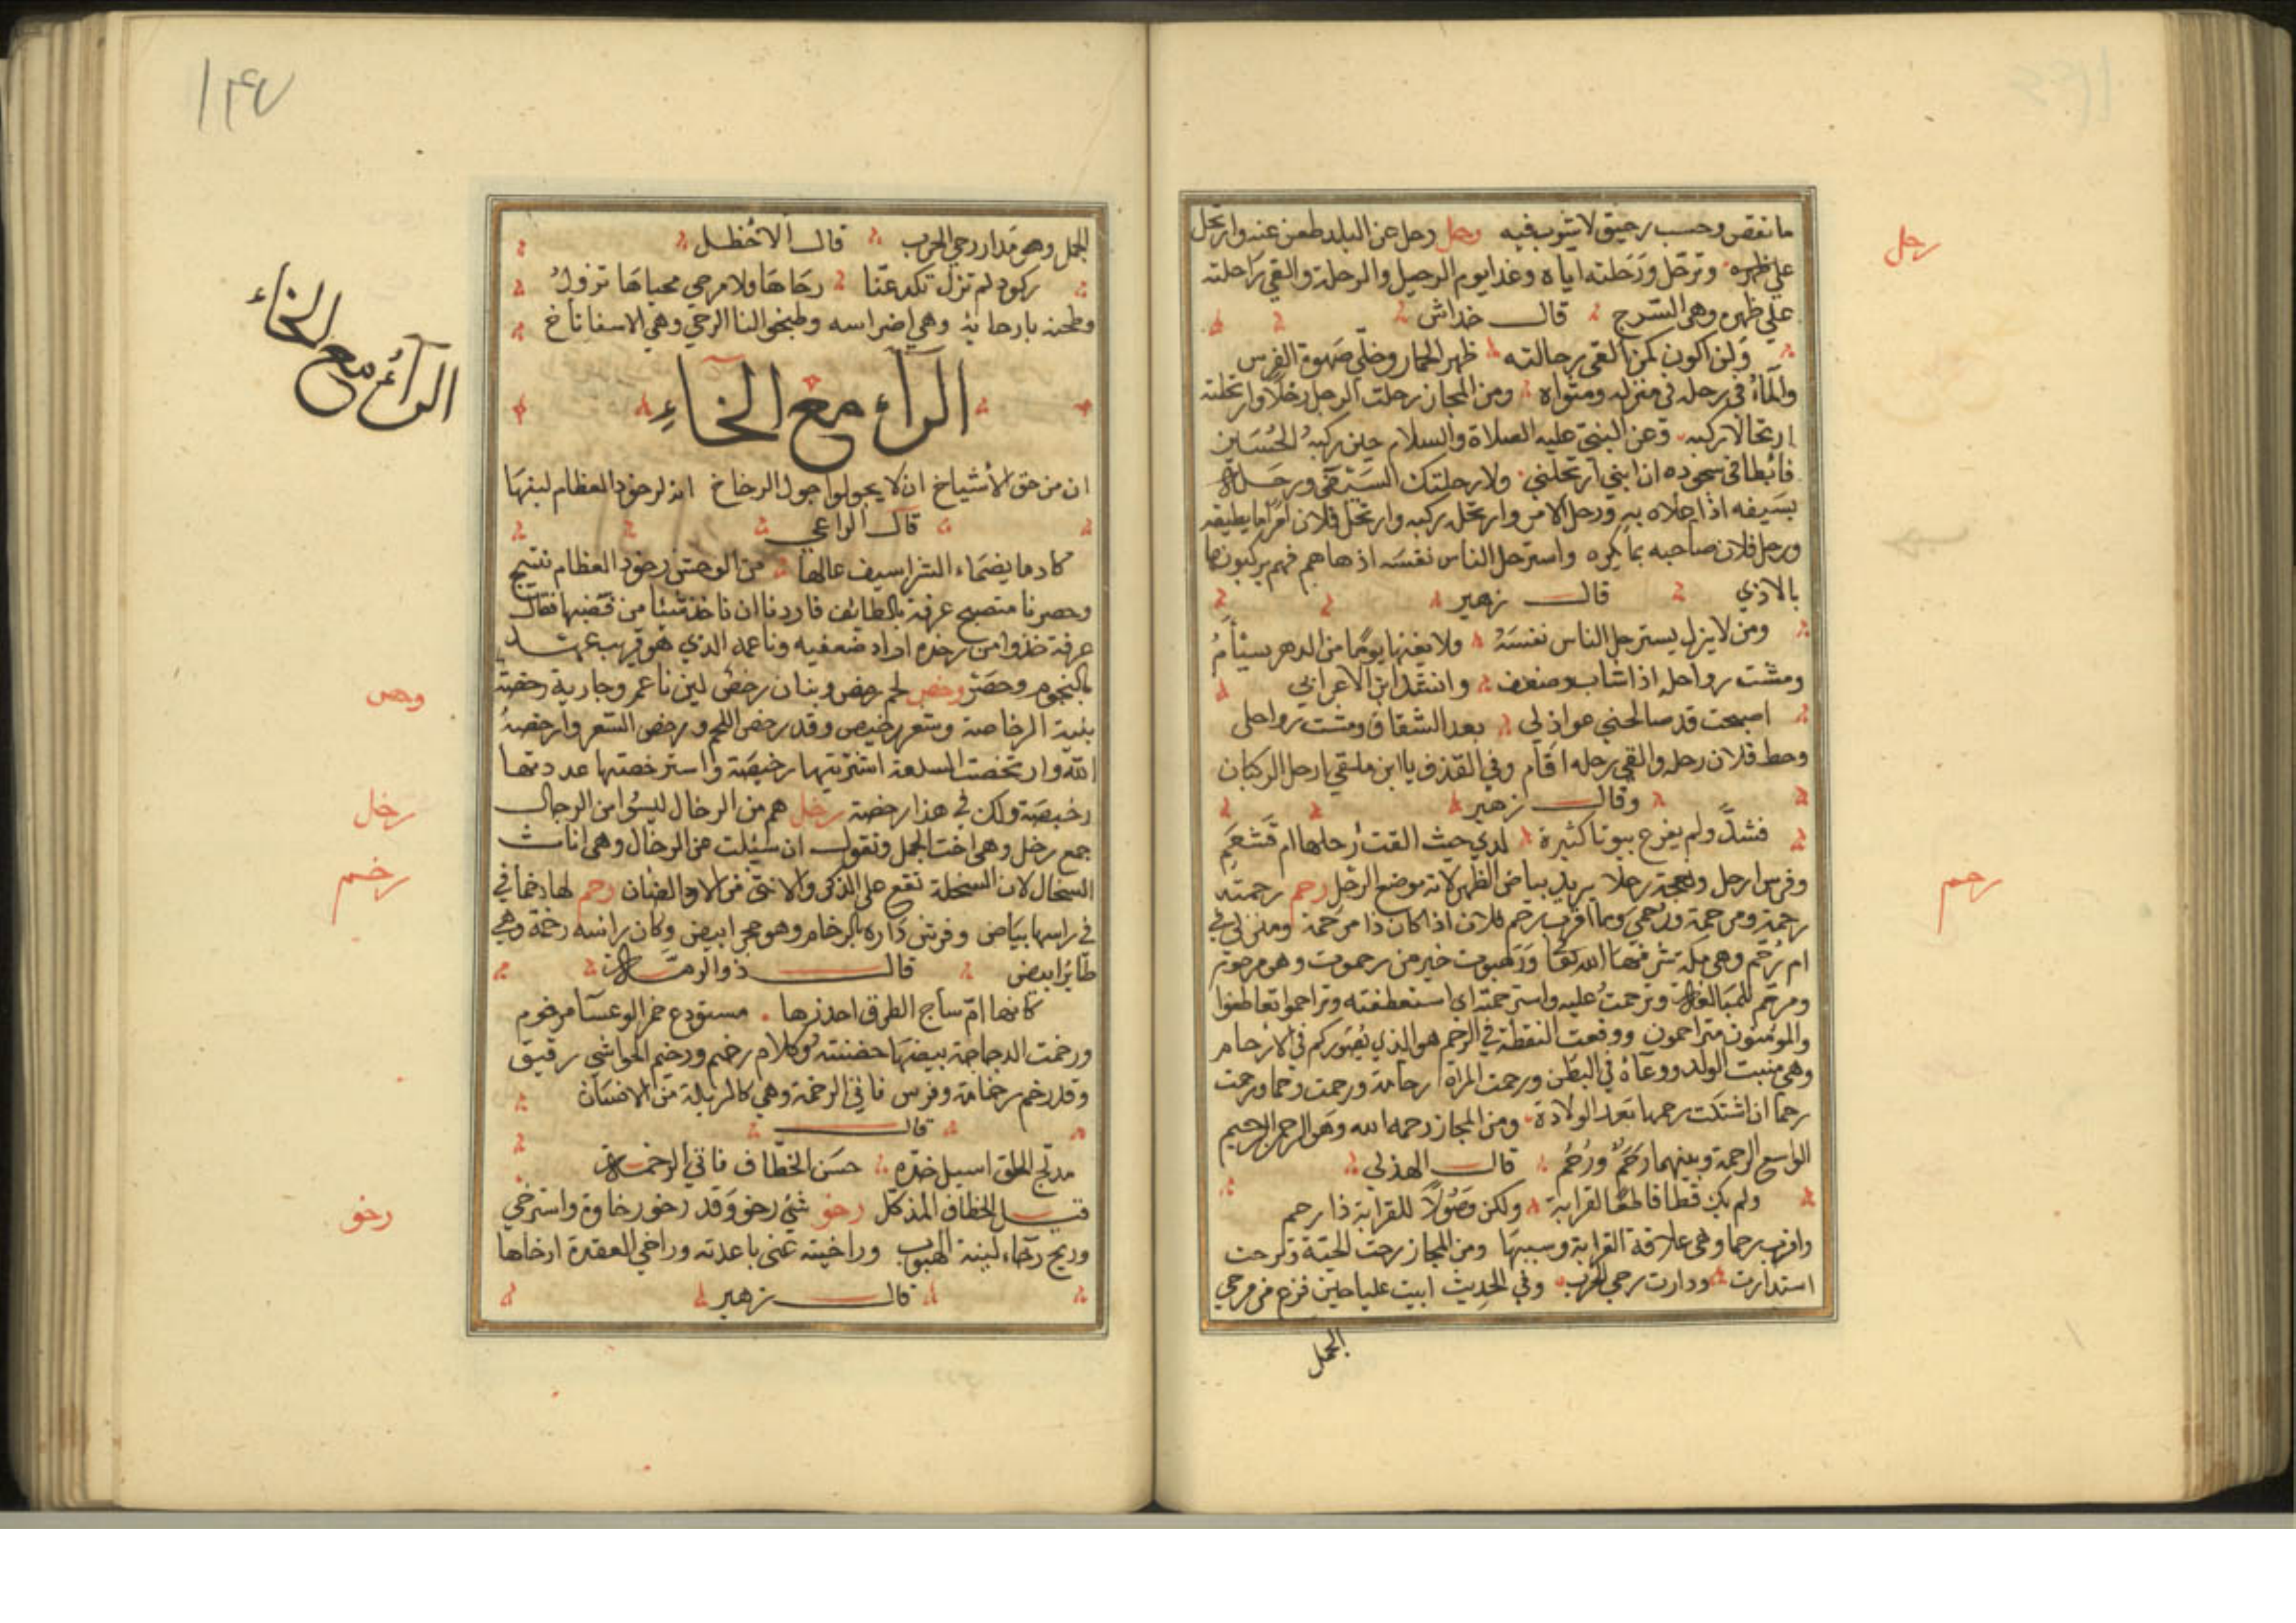 رحل
ما نقص وحسب رحيق لا يثوب فيه رحل رحل عن البلد ظعن عنه وارتحل
علي ظهره وترحل ورحلته اياه وغدا يوم الرحيل والرحلة والقي راحلته
علي ظهره وهي السرج قال خداش
ولن اكون كمن القي رحالته ظهر الحمار وخلي صهوة الفرس
والماء في رحله في منزله ومثواه ومن المجاز رحلت الرجل رحلا وارتحلته
ارتحالا ركبه وعن النبي عليه الصلاة والسلام حين ركبه الحسين
فابطا في سجوده ان ابني ارتحلني ولارحلنك بسيفي ورحله
بسيفه اذا علاه به ورحل الامر وارتحله ركبه وارتحل فلان امرا ما يطيقه
ورحل فلان صاحبه بما يكره واسترحل الناس نفسه اذلها لهم فهم يركبونها
بالاذي قال زهير
ومن لا يزل يسترحل الناس نفسه ولا يعفها يوما من الدهر يسأم
ومشت رواحله اذا شاب وضعف وانشد ابن الاعرابي
اصبحت قد صالحني عواذلي بعد الشقاق ومشت رواحلي
وحط فلان رحله والقي رحله اقام وفي القذف يا ابن ملقي ارحل الركبان
وقال زهير
فشد ولم يفزع بيوتا كثيرة لدي حيث القت رحلها ام قشعم
وفرس ارحل ونعجة رحلا يريد بياض الظهر لانه موضع الرحل رحم رحمته
رحم
رحمة ومرحمة ورحمي وما اقرب رحم فلان اذا كان ذا مرحمة ومنزلي في
ام رحم وهي مكة شرفها الله تعا ورهبوت خير من رحموت وهو مرحوم
ومرحم للمبالغة وترحمت عليه واسترحمته اي استعطفته وتراحموا تعاطفوا
والمؤمنون متراحمون ووقعت النطفة في الرحم هو الذي يصوركم في الارحام
وهي منبت الولد ووعاؤه في البطن ورحمت المراة رحامة ورحمت رحما ورحمت
رحما ان اشتكت رحمها بعد الولادة ومن المجاز رحمه الله وهو الرحمن الرحيم
الواسع الرحمة وبينهما رحم ورحم قال الهذلي
ولم يك فظا قاطعا لقرابة ولكن وصولا للقرابة ذا رحم
واقرب رحما وهي علاقة القرابة وسببها ومن المجاز رحت الحية وترحت
استدارت ودارت رحي الحرب وفي الحديث ابيت عليا حين فرغ من مرحي
الجمل
١٤٧
الجمل وهو مدار رحي الحرب قال الاخطل
ركود لم تزل تكد عنا رحاها ولا مرحي محياها تزول
وطحنه بارحائه وهي اضراسه وطبخوا لنا الرحي وهي الاسفاناخ
الراء مع الخاء
الراء مع الخاء
ان من حق الاشياخ ان لا يجولوا جول الرخاخ انه لرخود العظام لينها
قال الراعي
كاد ما يضماء الشراسيف عالها من الوحش رخود العظام نتيج
وحصرنا متصبح عرفة بالطائف فاردنا ان ناخذ شيئا من قضبها فقال
عرفة خذوا من رخده اراد ضعفيه وناعمه الذي هو قريب عهد
بالنجوم وحصر رخص لحم رخص وبنان رخص لين ناعم وجارية رخصة
رخص
بينة الرخاصة وسعر رخيص وقد رخص اللحم ورخص السعر وارخصه
الله وارتخصت السلعة اشتريتها رخيصة واسترخصتها عددتها
رخيصة ولك في هذا رخصة رخل هم من الرخال ليسوا من الرجال
رخل
جمع رخل وهي اخت الحمل وتقول ان سئلت عن الرخال وهي اناث
السخال لان السخلة تقع علي الذكر والانثي من اولاد الضان رخم لهادخما في
رخم
في راسها بياض وفرش داره بالرخام وهو حجر ابيض وكان راسه رخمة وهي
طائر ابيض قال ذوالرمة
كانها ام ساج الطرف اخدرها مستودع خمر الوعسا مرخوم
ورخمت الدجاجة بيضها حضنته وكلام رخيم ورخيم الحواشي رقيق
وقد رخم رخامة وفرس نافي الرخمة وهي كالربلة من الانسان
قال
مدمج الخلق اسيل خده حسن الخطاف نافي الرخمة
قيل الخطاف المذكل رخو شئ رخو وقد رخو رخاوة واسترخي
رخو
وريح رخاء لينة الهبوب وراخيته عني باعدته وراخي العقدة ارخاها
قال زهير